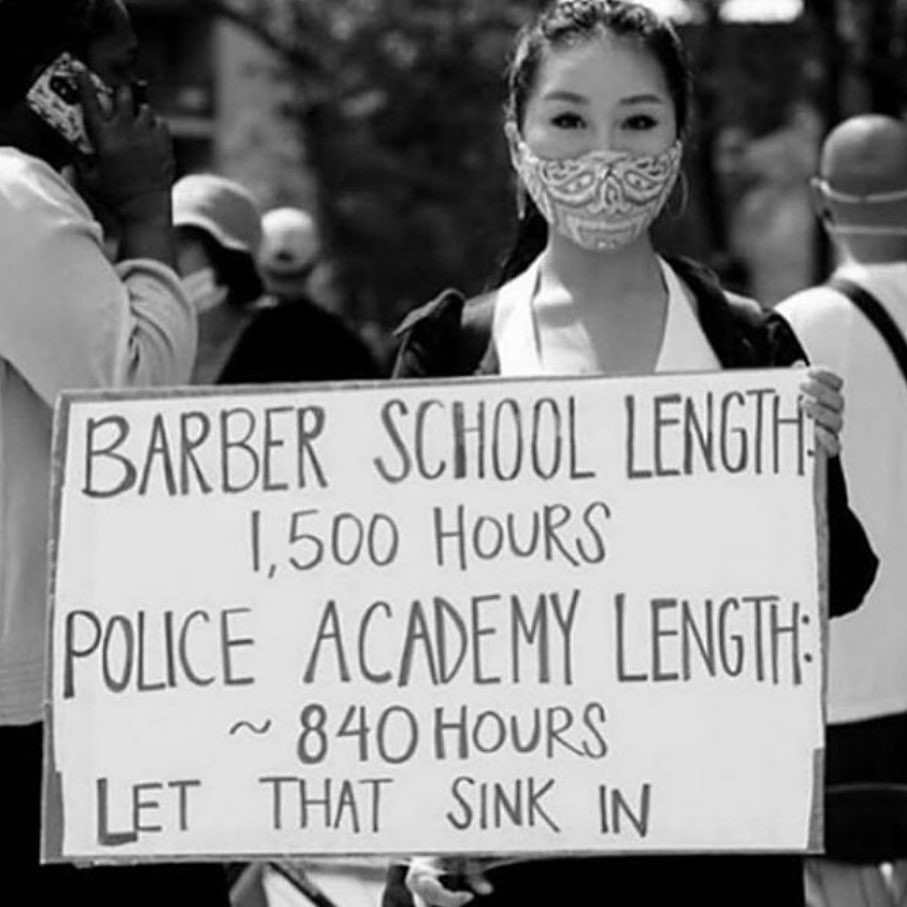 BARBER SCHOOL LENGTH:
1,500 HOURS
POLICE ACADEMY LENGTH:
~ 840 HOURS
LET THAT SINK IN